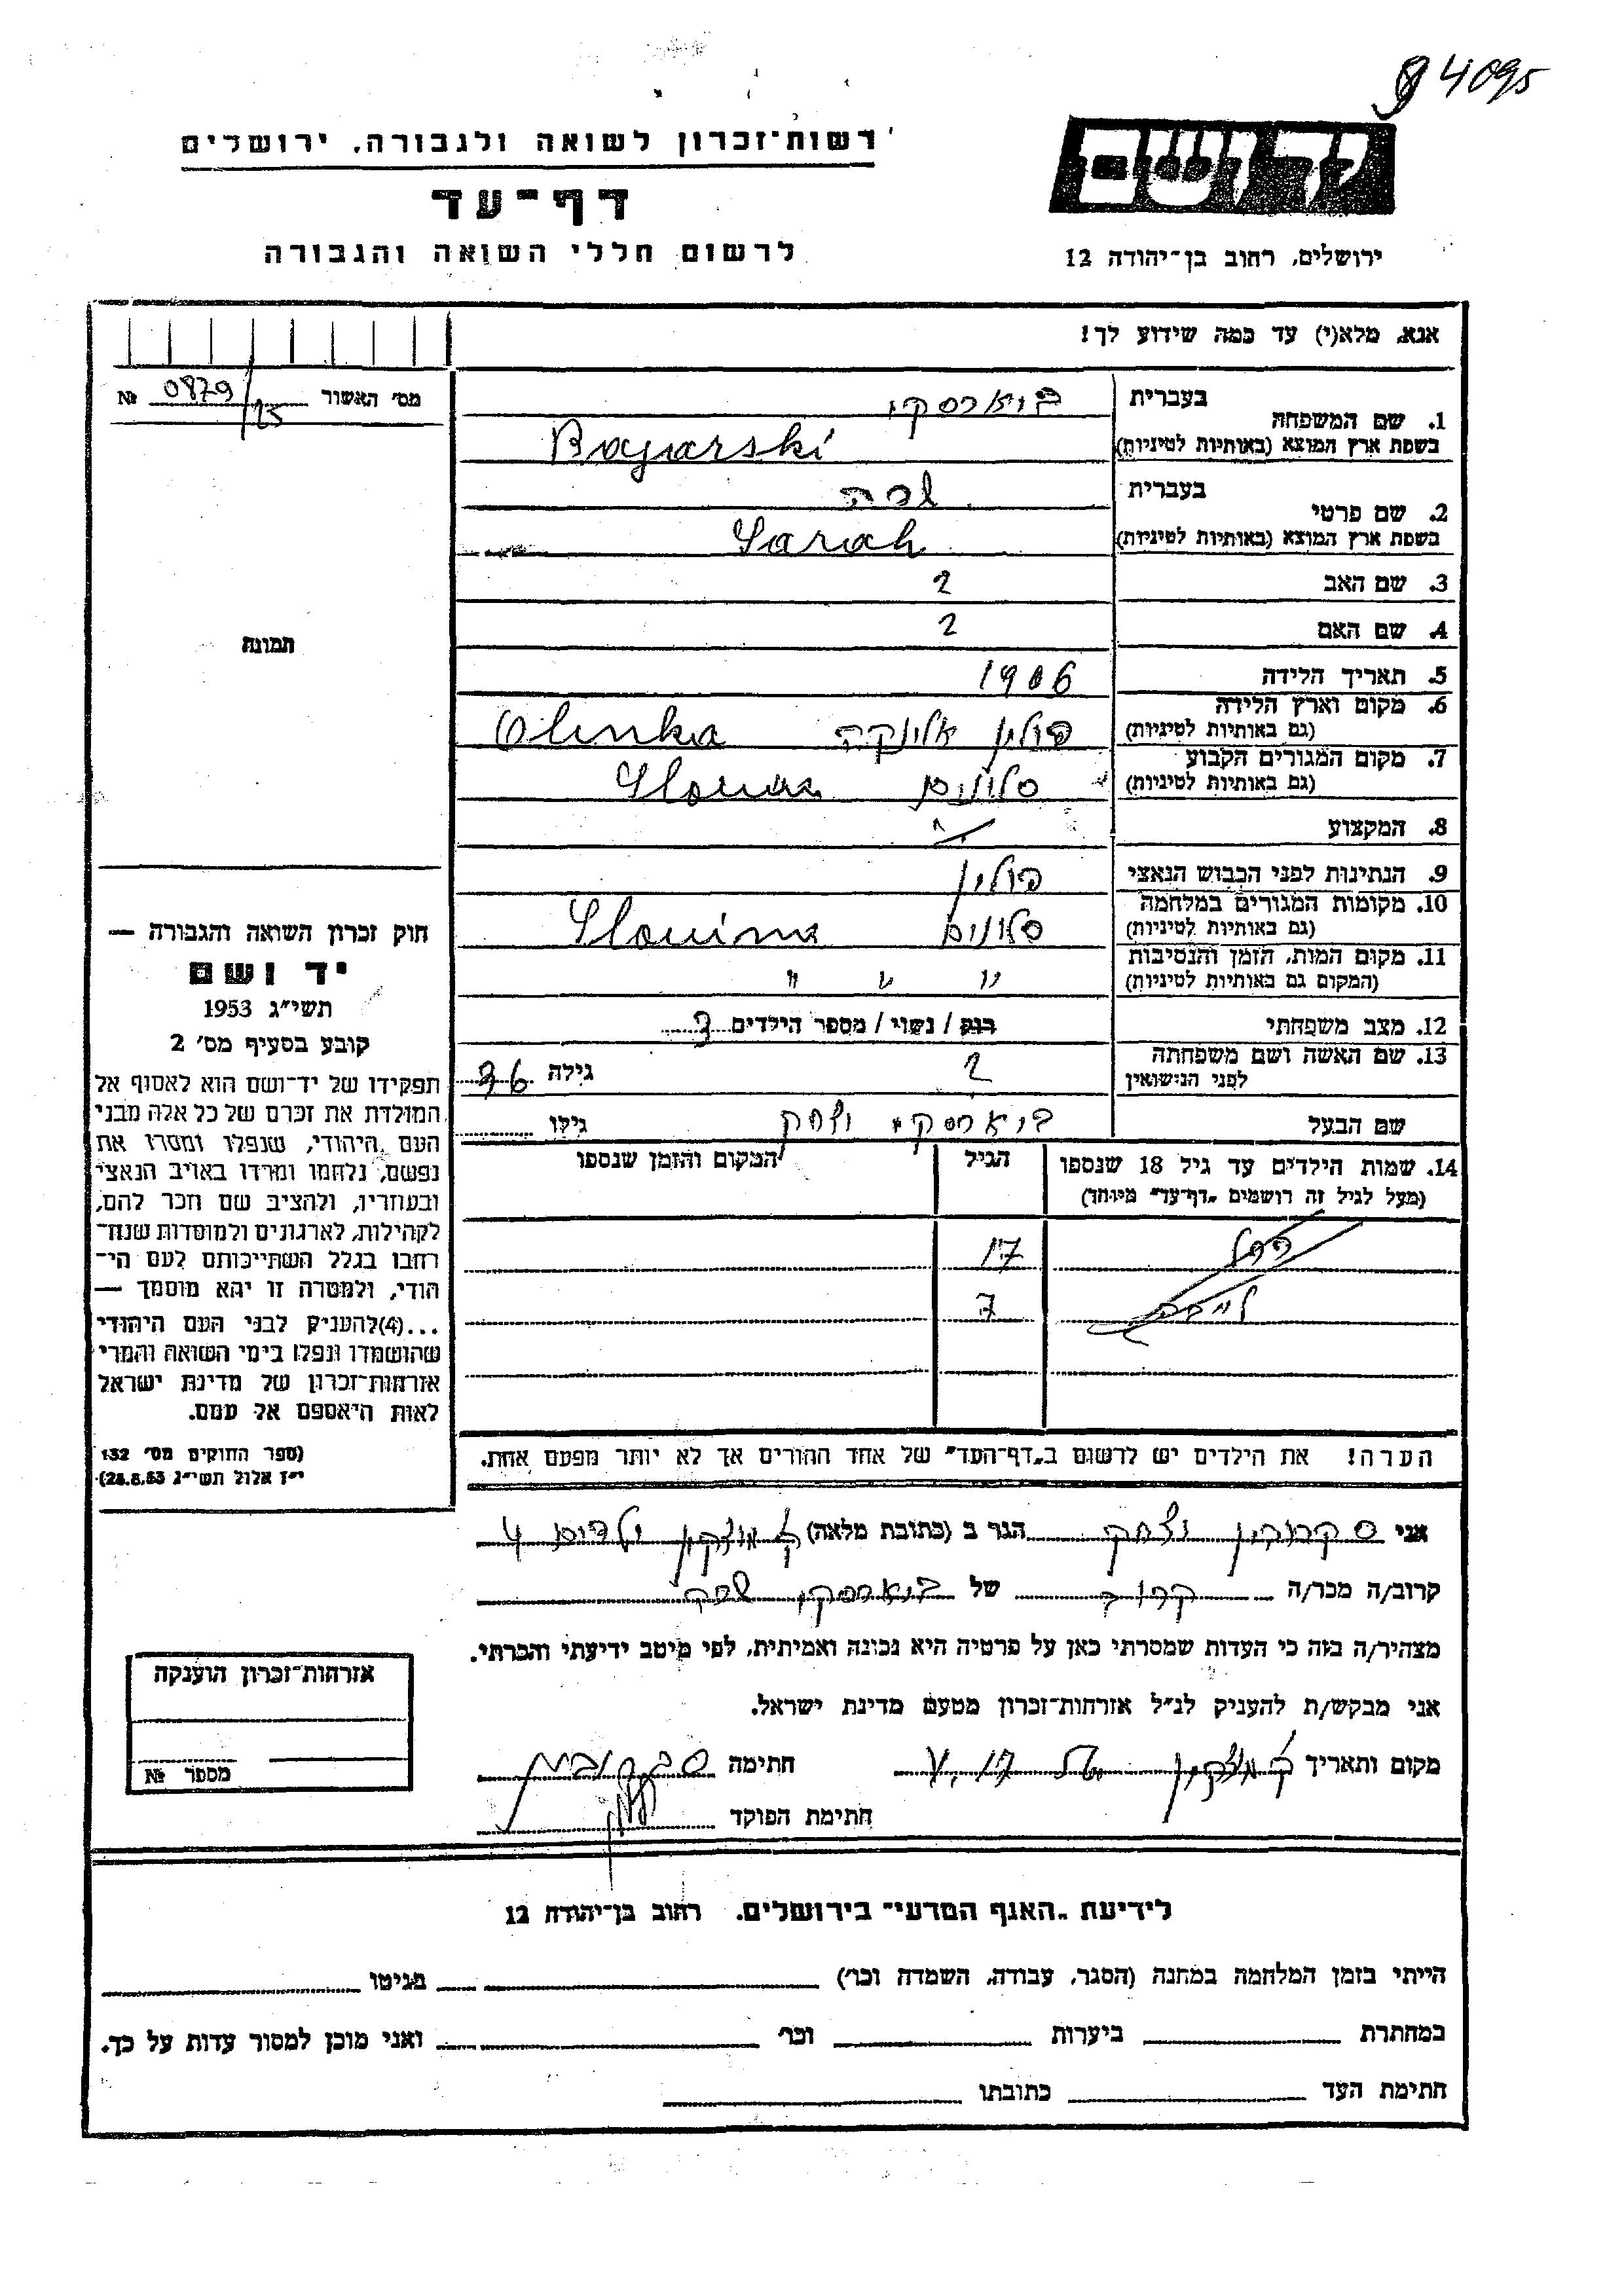 4095
רשות־זכרון לשואה ולגבורה, ירושלים
דף־עד
לרשום חללי השואה והגבורה
יד ושם
ירושלים, רחוב בן־יהודה 12
אנא, מלא(י) עד כמה שידוע לך!
מס׳ האשור 0879/25 №
1. שם המשפחה בעברית בויארסקי
בשפת ארץ המוצא (באותיות לטיניות) Bojarski
2. שם פרטי בעברית שרה
בשפת ארץ המוצא (באותיות לטיניות) Sarah
3. שם האב ?
4. שם האם ?
5. תאריך הלידה 1906
6. מקום וארץ הלידה (גם באותיות לטיניות) פולין אלינקה Olinka
7. מקום המגורים הקבוע (גם באותיות לטיניות) סלונים
8. המקצוע
9. הנתינות לפני הכבוש הנאצי פולין
10. מקומות המגורים במלחמה (גם באותיות לטיניות) סלונים
11. מקום המות, הזמן והנסיבות (המקום גם באותיות לטיניות) " " "
12. מצב משפחתי רווק / נשוי / מספר הילדים 3
13. שם האשה ושם משפחתה לפני הנישואין ? גילה 36
שם הבעל בויארסקי יצחק גילו
14. שמות הילדים עד גיל 18 שנספו הגיל המקום והזמן שנספו
(מעל לגיל זה רושמים „דף־עד" מיוחד)
17
7
הערה! את הילדים יש לרשום ב„דף־העד" של אחד ההורים אך לא יותר מפעם אחת.
תמונה
חוק זכרון השואה והגבורה —
יד ושם
תשי״ג 1953
קובע בסעיף מס׳ 2
תפקידו של יד־ושם הוא לאסוף אל
המולדת את זכרם של כל אלה מבני
העם היהודי, שנפלו ומסרו את
נפשם, נלחמו ומרדו באויב הנאצי
ובעוזריו, ולהציב שם וזכר להם,
לקהילות, לארגונים ולמוסדות שנח־
רבו בגלל השתייכותם לעם הי־
הודי, ולמטרה זו יהא מוסמך —
...(4) להעניק לבני העם היהודי
שהושמדו ונפלו בימי השואה והמרי
אזרחות־זכרון של מדינת ישראל
לאות היאספם אל עמם.
(ספר החוקים מס׳ 132
י״ז אלול תשי״ג 28.8.53)
אני יצחק הגר ב (כתובת מלאה) ק. מוצקין
קרוב/ה מכר/ה קרוב של בויארסקי שרה
מצהיר/ה בזה כי העדות שמסרתי כאן על פרטיה היא נכונה ואמיתית, לפי מיטב ידיעתי והכרתי.
אני מבקש/ת להעניק לנ״ל אזרחות־זכרון מטעם מדינת ישראל.
מקום ותאריך ק. מוצקין חתימה
חתימת הפוקד
אזרחות־זכרון הוענקה
מספר №
לידיעת „האגף המדעי" בירושלים, רחוב בן־יהודה 12
הייתי בזמן המלחמה במחנה (הסגר, עבודה, השמדה וכו׳) בגיטו
במחתרת ביערות וכו׳ ואני מוכן למסור עדות על כך.
חתימת העד כתובתו